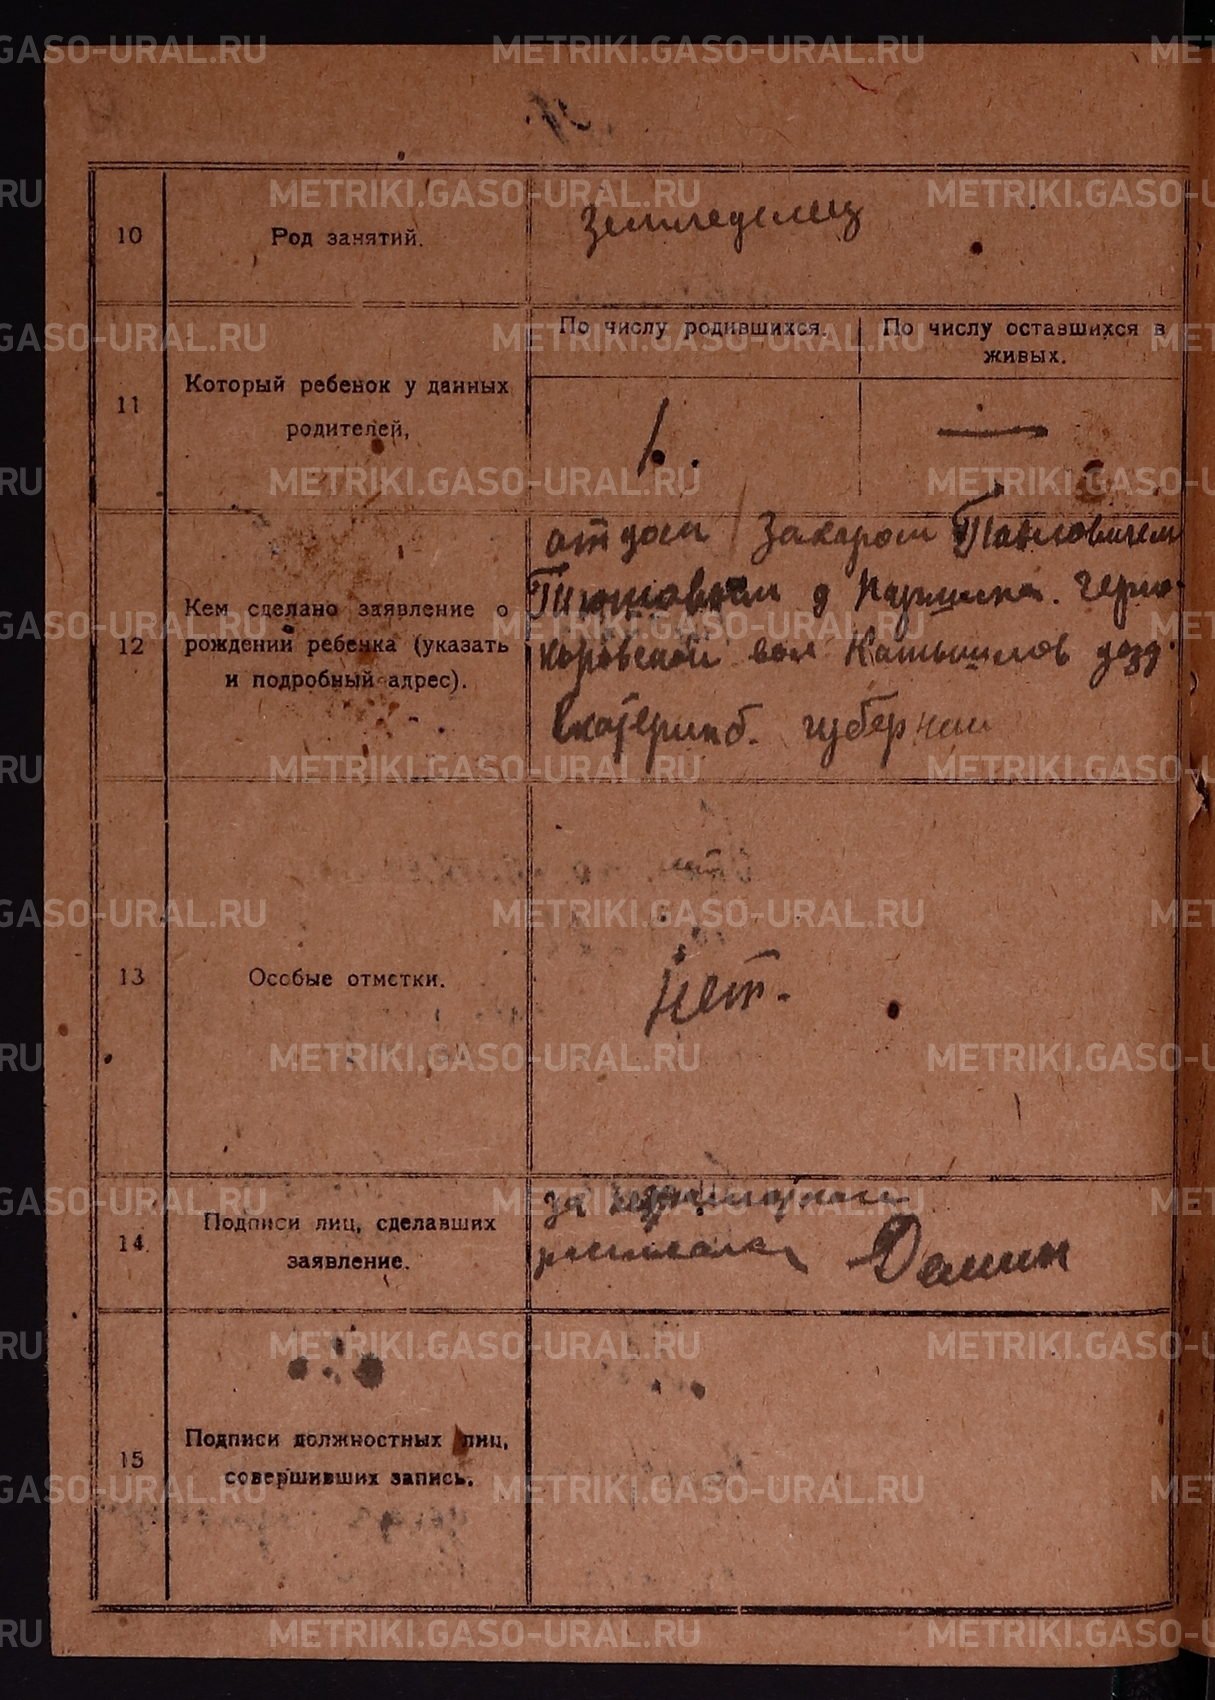 10
Род занятий.
Земледелец
11
Который ребенок у данных
родителей,
По числу родившихся.
По числу оставшихся в
живых.
1.
—
12
Кем сделано заявление о
рождении ребенка (указать
и подробный адрес).
отцом Захаром Павловичем
д Паршина. Черно-
коровской вол Камышлов уезд.
Екатеринб. губернии
13
Особые отметки.
Нет.
14.
Подписи лиц, сделавших
заявление.
за неграмотного
15
Подписи должностных лиц,
совершивших запись.
METRIKI.GASO-URAL.RU